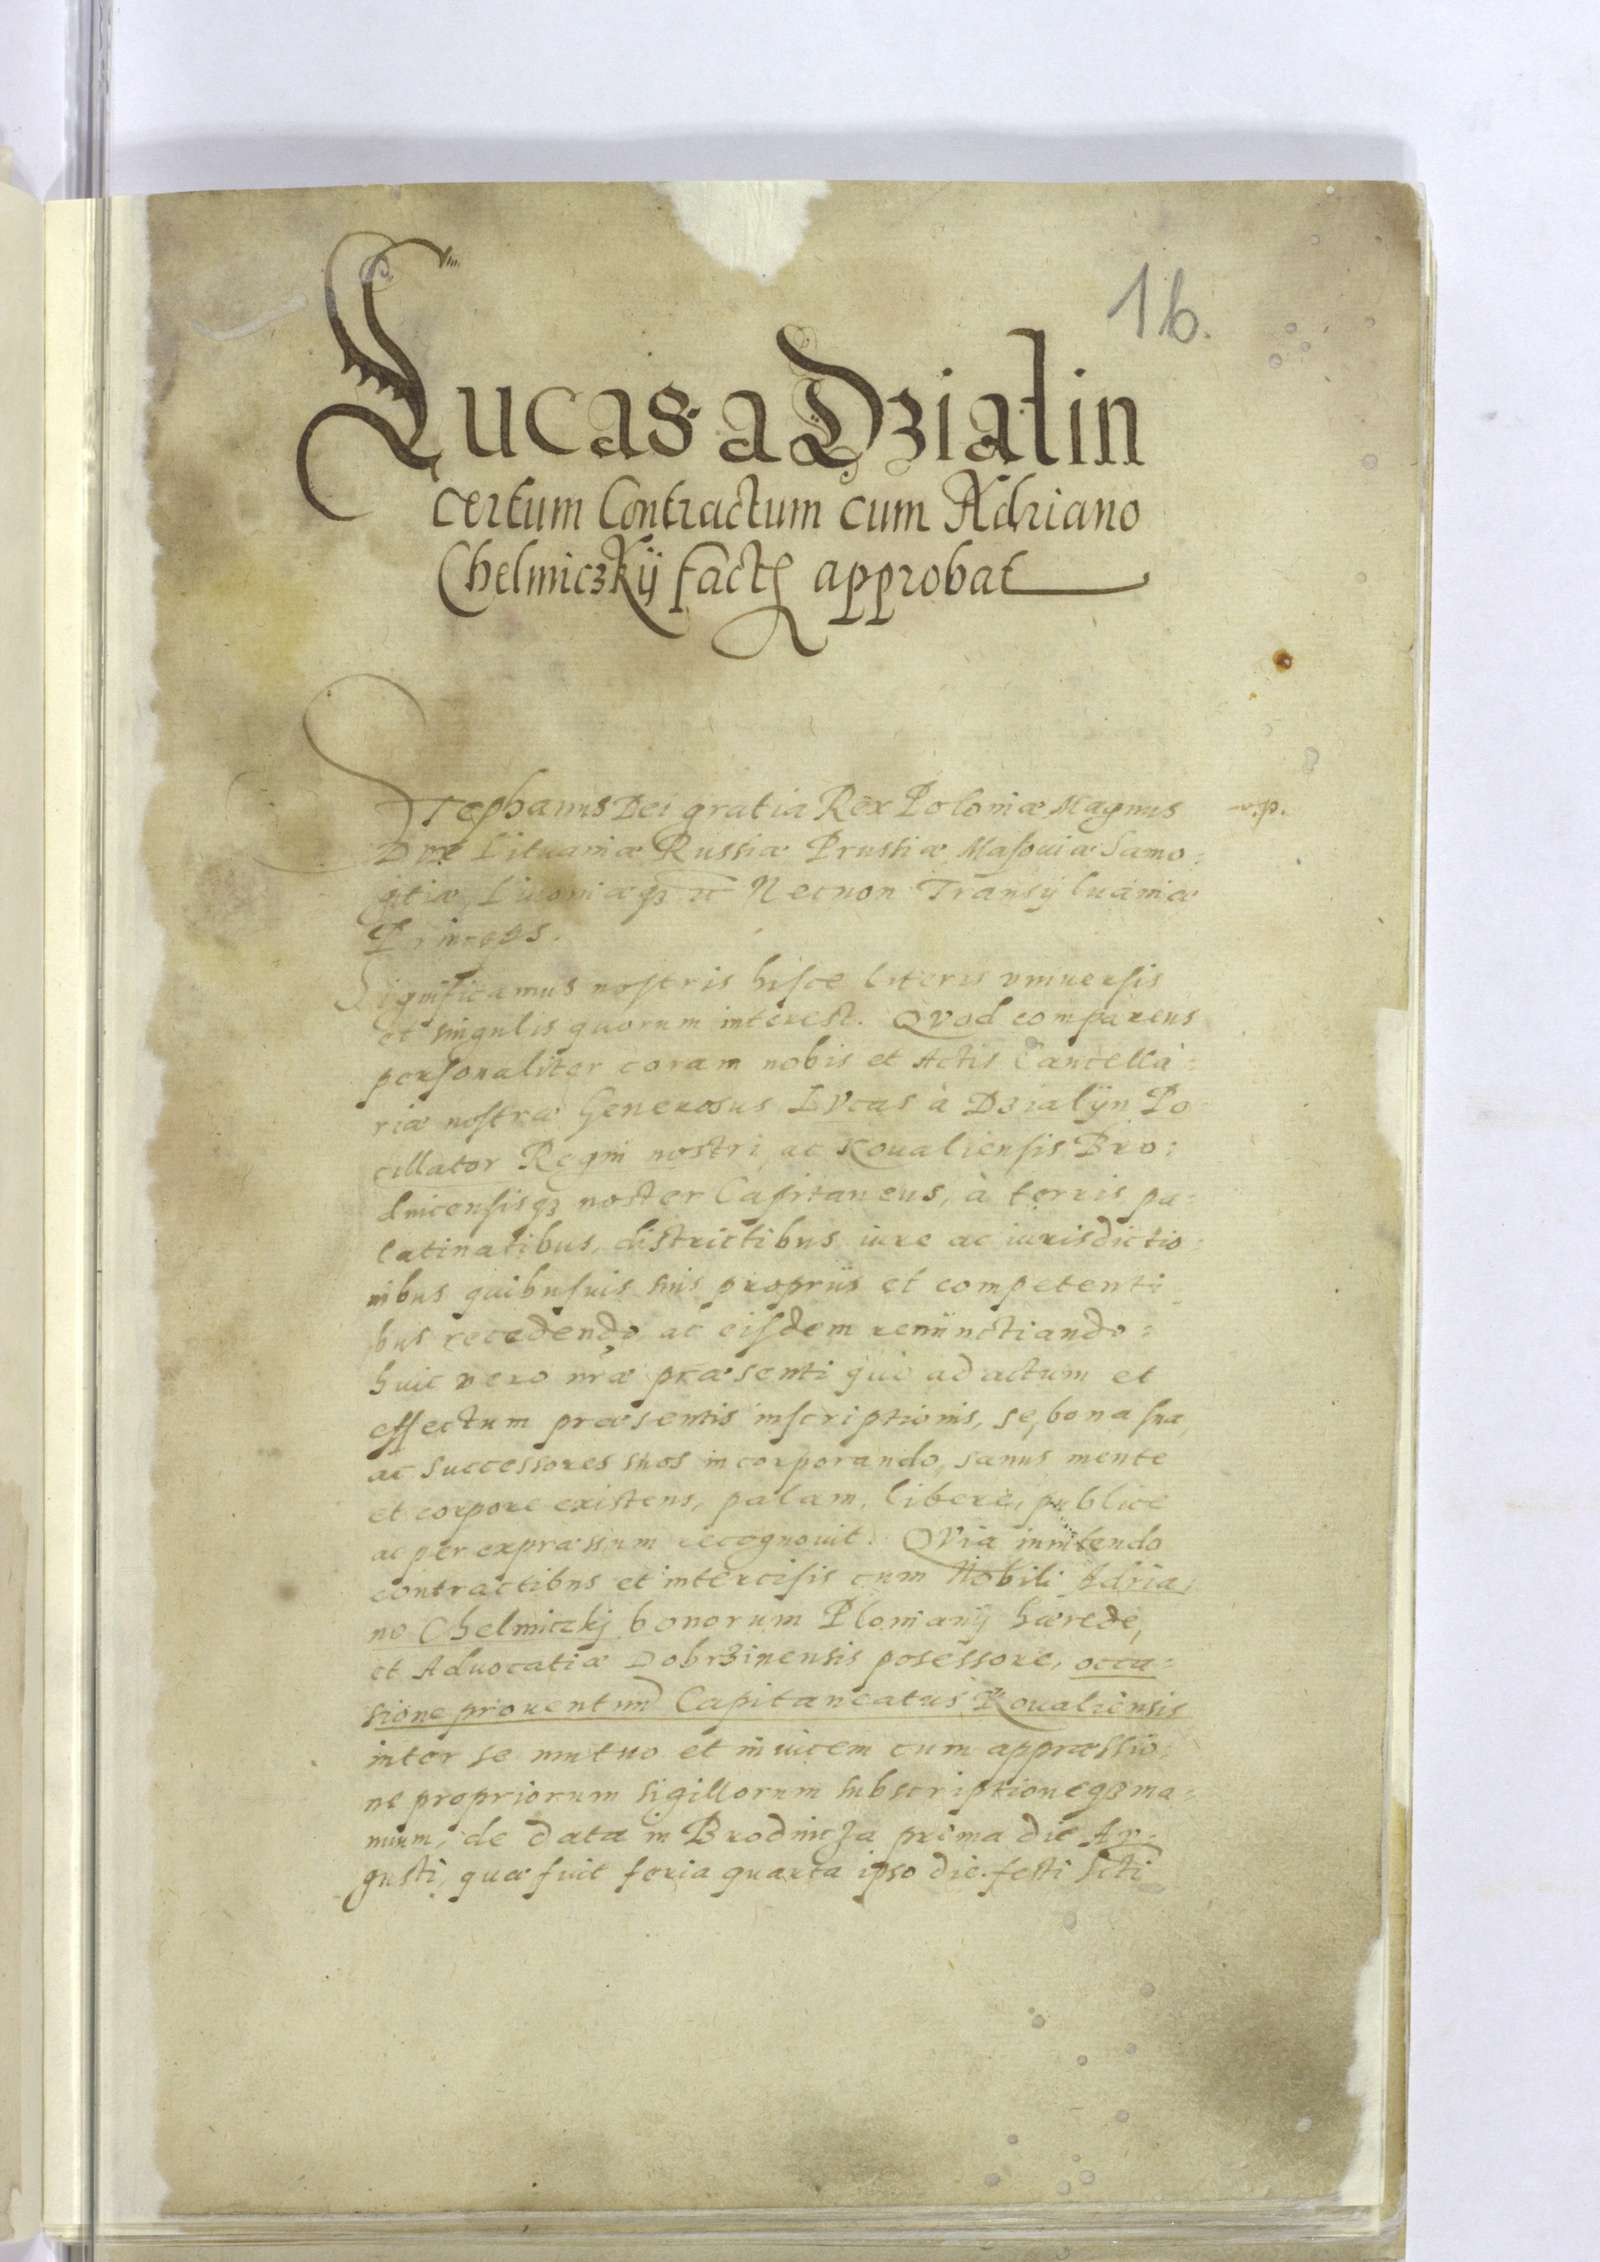 16.
Lucas a Dzialin
certum Contractum cum Adriano
Chelmiczkij fact approbat
Stephanus Dei gratia Rex Poloniæ Magnus
Dux Lituaniæ Russiæ Prussiæ Masouiæ Samo:
gitiæ, Liuoniæqꝫ ꝛc Necnon Transÿluaniæ
Princeps.
Significamus nostris hisce literis vniuersis
et singulis quorum interest. QVod comparens
personaliter coram nobis et Actis Cancella:
riæ nostræ Generosus LVcas à Dzialÿn Po
cillator Regni nostri, ac Koualiensis Bro:
dnicensisqꝫ noster Capitaneus, à terris pa:
latinatibus, districtibus iure ac iurisdictio:
nibus quibusuis suis proprijs et competenti
bus recedendo, ac eisdem renünctiando:
huic vero nræ præsenti quo ad actum et
effectum præsentis inscriptionis, se, bona sua,
ac successores suos incorporando, sanus mente
et corpore existens, palam, libere, publice
ac per expræssum recognouit. QVia innitendo
contractibus et intercisis cum Nobili Adria:
no Chelmiczkj bonorum Plomianÿ hærede,
et Aduocatiæ Dobrzinensis posessore, occa:
sione prouentuum Capitaneatus Koualiensis
inter se mutuo et inuicem cum appræssio:
ne propriorum sigillorum subscriptioneqꝫ ma:
nuum, de data in Brodnicza prima die Au:
gusti, quæ fuit feria quarta ipso die festi Scti